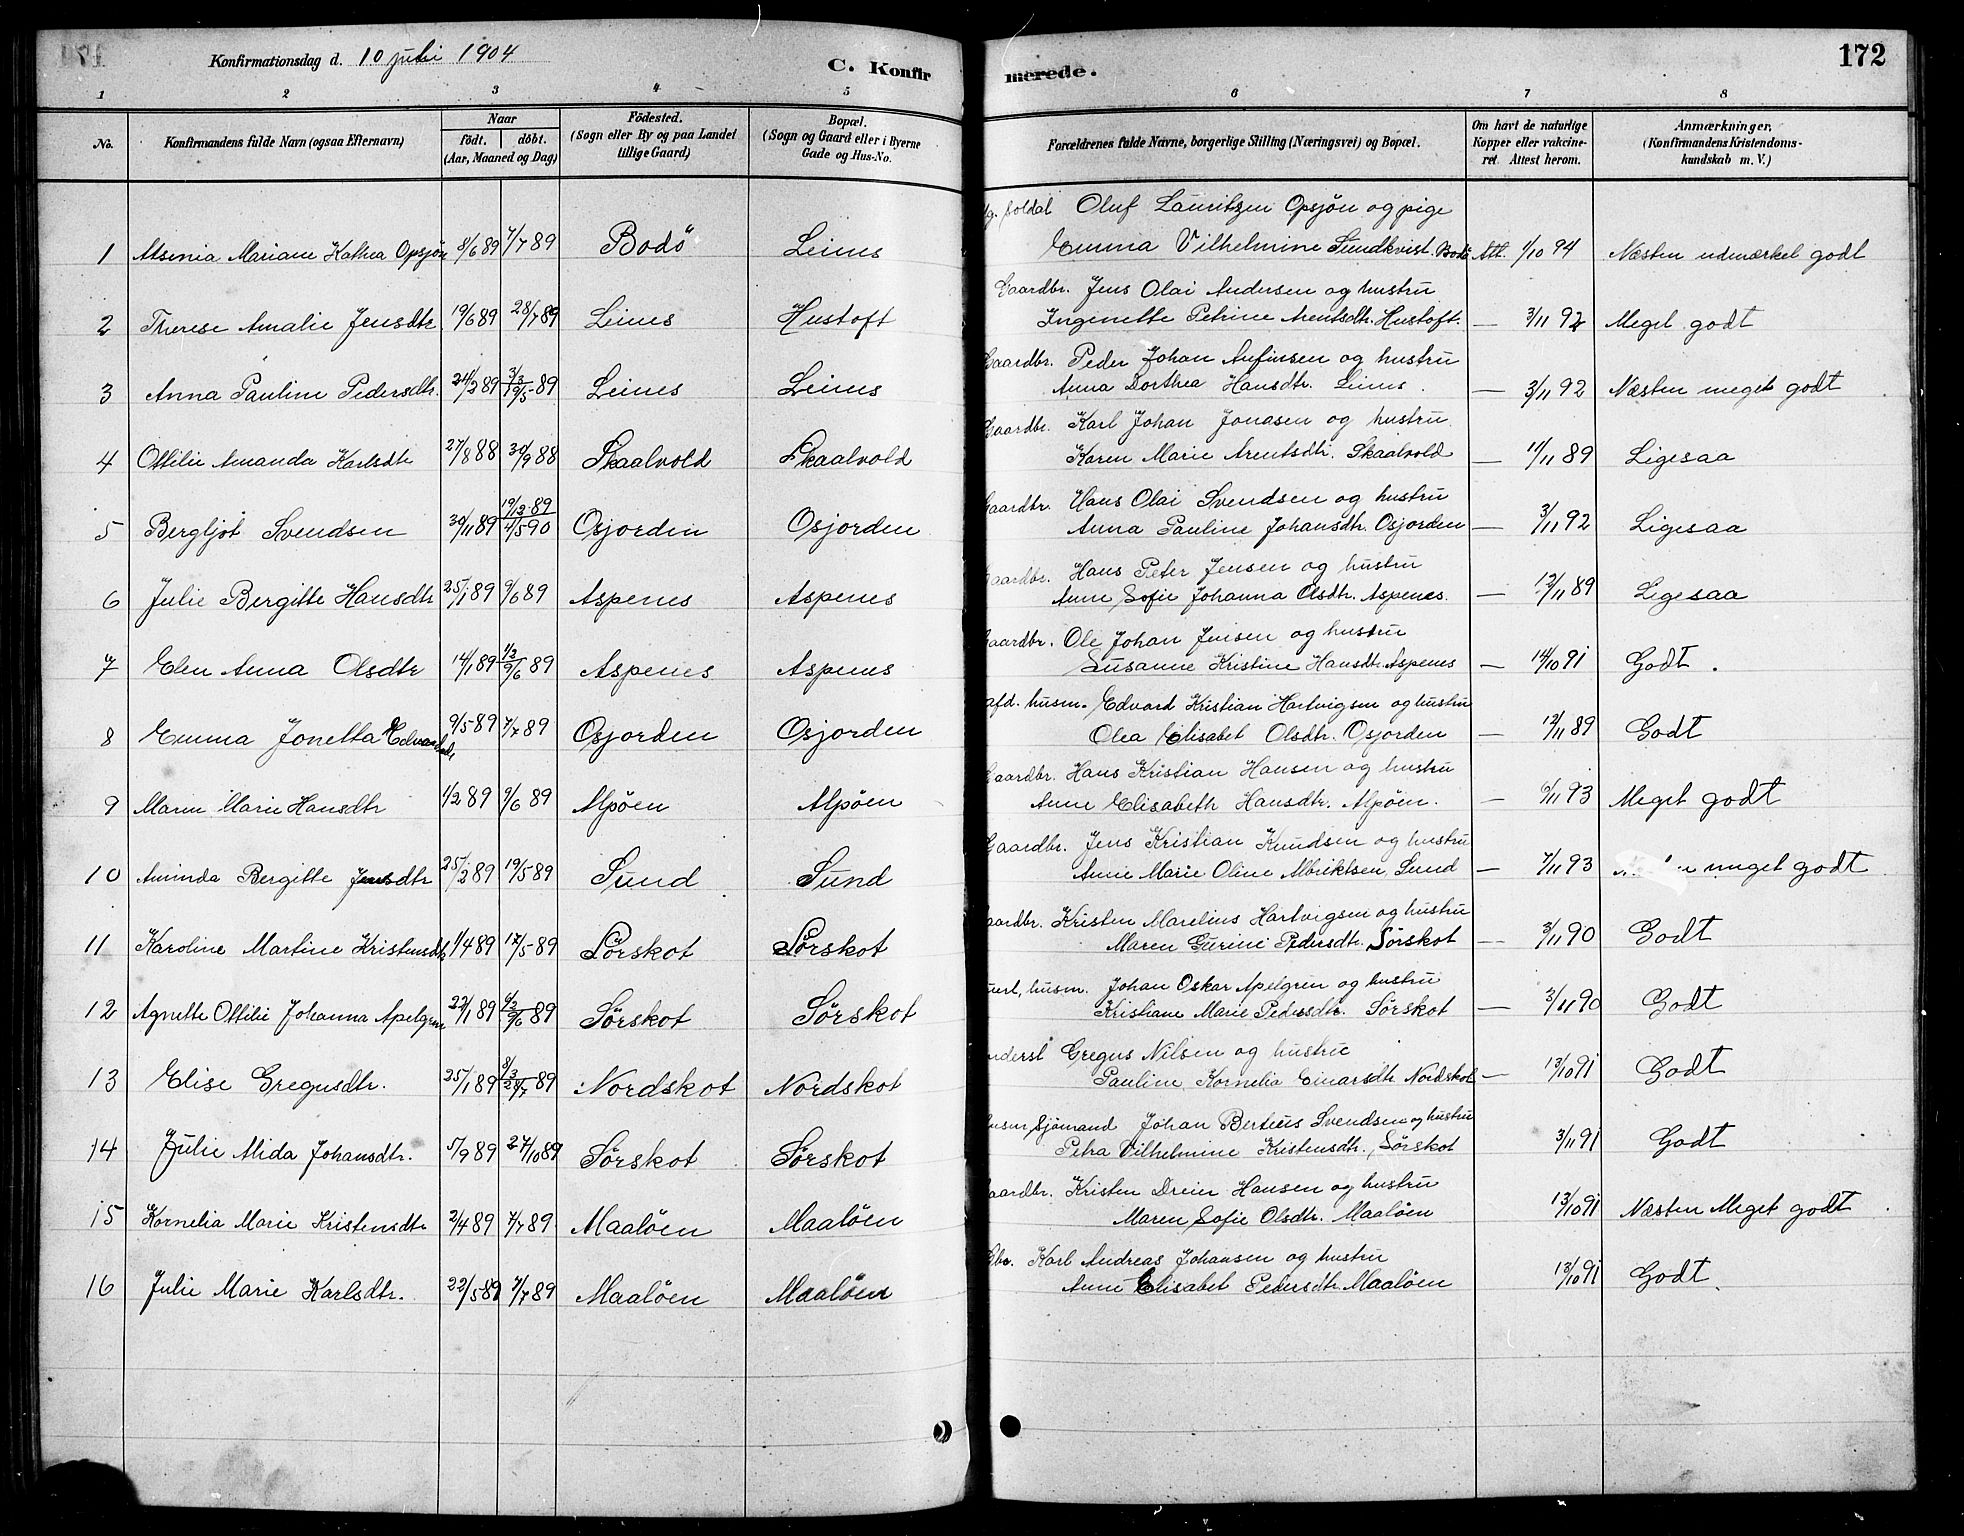 Konfirmationsdag d. 10 juli 1904
C. Konfirmerede.
172
1 2 3 4 5 6 7 8
No. Konfirmandens fulde Navn (ogsaa Efternavn) Naar født. døbt. (Aar, Maaned og Dag) Födested. (Sogn eller By og paa Landet tillige Gaard) Bopæl. (Sogn og Gaard eller i Byerne Gade og Hus-No.
Forældrenes fulde Navne, borgerlige Stilling (Næringsvei) og Bopæl. Om havt de naturlige Kopper eller vakcineret. Attest herom. Anmærkninger. (Konfirmandens Kristendomskundskab m. V.)
Soldat Oluf Lauritzen Opsjøn og pige
1 Alsenia Mariane Kathea Opsjøn 8/6 89 7/7 89 Bodö Leines Emma Vilhelmine Sundkvist. Bodö Att. 1/10 94 Næsten udmærket godt
Gaardbr. Jens Olai Andersen og hustru
2 Therese Amalie Jensdtr 19/6 89 28/7 89 Leines Hustoft Ingenette Petrine Arentsdtr. Hustoft. — 3/11 92 Meget godt
Gaardbr. Peder Johan Anfinsen og hustru
3 Anna Pauline Pedersdtr. 24/2 89 3/3 19/5 89 Leines Leines Anna Dorthea Hansdtr. Leines. — 3/11 92 Næsten meget godt
Gaardbr. Karl Johan Jonasen og hustru
4 Ottilie Amanda Karlsdtr 27/8 88 30/9 88 Skaalvold Skaalvold Karen Marie Arentsdtr. Skaalvold — 11/11 89 Ligesaa
Gaardbr. Hans Olai Svendsen og hustru
5 Bergljot Svendsen 30/11 89 19/12 89 4/5 90 Osjorden Osjorden Anna Pauline Johansdtr. Osjorden — 3/11 92 Ligesaa
Gaardbr. Hans Peter Jensen og hustru
6 Julie Bergitte Hansdtr 25/1 89 9/6 89 Aspenes Aspenes Anne Sofie Johanna Olsdtr. Aspenes. — 12/11 89 Ligesaa
Gaardbr. Ole Johan Jensen og hustru
7 Elen Anna Olsdtr 14/1 89 1/3 9/6 89 Aspenes Aspenes Susanne Kristine Hansdtr. Aspenes — 14/10 91 Godt.
afd. husm. Edvard Kristian Hartvigsen og hustru
8 Emma Jonetta Edvardsd. 9/5 89 7/7 89 Osjorden Osjorden Olea Elisabet Olsdtr. Osjorden — 12/11 89 Godt
Gaardbr. Hans Kristian Hansen og hustru
9 Maren Marie Hansdtr 1/2 89 9/6 89 Alpöen Alpöen Anne Elisabeth Hansdtr. Alpöen. — 6/11 93 Meget godt
Gaardbr. Jens Kristian Knudsen og hustru
10 Aminda Bergitte Jensdtr 25/2 89 19/5 89 Sund Sund Anne Marie Oline Albriktsen, Sund — 7/11 93 meget godt
Gaardbr. Kristen Marelius Hartvigsen og hustru
11 Karoline Martine Kristensdtr 1/4 89 17/5 89 Sørskot Sørskot Maren Gurine Pedersdtr. Sørskot — 3/11 90 Godt
husm. Johan Oskar Apelgren og hustru
12 Agnette Ottilie Johanna Apelgren 22/1 89 9/2 9/6 89 Sørskot Sørskot Kristiane Marie Pedersdtr. Sørskot — 3/11 90 Godt
Gregus Nilsen og hustru
13 Elise Gregusdtr. 25/1 89 8/3 28/7 89 Nordskot Nordskot Pauline Kornelia Einarsdtr Nordskot — 13/10 91 Godt
Sjømand Johan Berteus Svendsen og hustru
14 Julie Alida Johansdtr. 5/9 89 27/10 89 Sørskot Sørskot Petra Vilhelmine Kristensdtr., Sørskot 3/11 91 Godt
Gaardbr. Kristen Dreier Hansen og hustru
15 Kornelia Marie Kristensdtr 2/4 89 7/7 89. Maaløen Maaløen Maren Sofie Olsdtr. Maaløen 13/10 91 Næsten Meget godt
Gbr. Karl Andreas Johansen og hustru
16 Julie Marie Karlsdtr. 22/5 89 7/7 89 Maaløen Maaløen Anne Elisabet Pedersdtr. Maaløen 13/10 91 Godt.